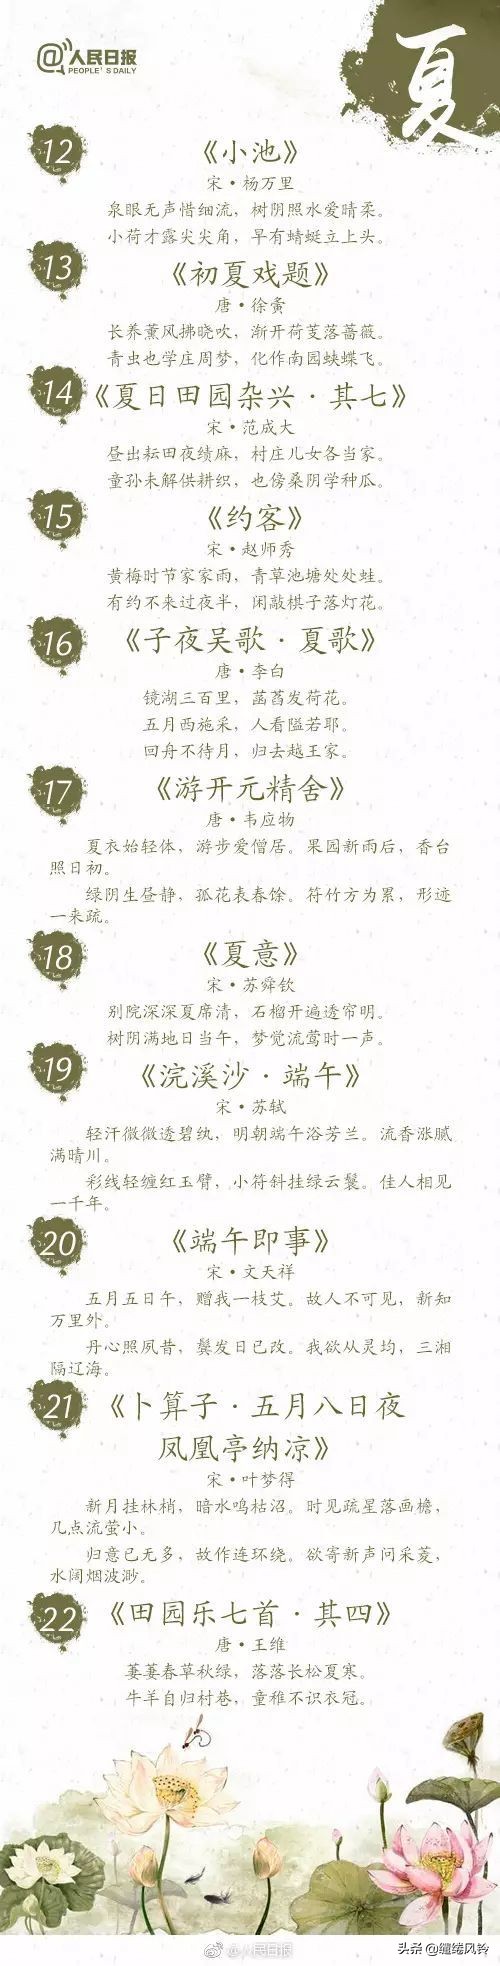 @人民日报
PEOPLE'S DAILY
夏
12
《小池》
宋·杨万里
泉眼无声惜细流，树阴照水爱晴柔。
小荷才露尖尖角，早有蜻蜓立上头。
13
《初夏戏题》
唐·徐夤
长养薰风拂晓吹，渐开荷芰落蔷薇。
青虫也学庄周梦，化作南园蛱蝶飞。
14
《夏日田园杂兴·其七》
宋·范成大
昼出耘田夜绩麻，村庄儿女各当家。
童孙未解供耕织，也傍桑阴学种瓜。
15
《约客》
宋·赵师秀
黄梅时节家家雨，青草池塘处处蛙。
有约不来过夜半，闲敲棋子落灯花。
16
《子夜吴歌·夏歌》
唐·李白
镜湖三百里，菡萏发荷花。
五月西施采，人看隘若耶。
回舟不待月，归去越王家。
17
《游开元精舍》
唐·韦应物
夏衣始轻体，游步爱僧居。果园新雨后，香台
照日初。
绿阴生昼静，孤花表春馀。符竹方为累，形迹
一来疏。
18
《夏意》
宋·苏舜钦
别院深深夏席清，石榴开遍透帘明。
树阴满地日当午，梦觉流莺时一声。
19
《浣溪沙·端午》
宋·苏轼
轻汗微微透碧纨，明朝端午浴芳兰。流香涨腻
满晴川。
彩线轻缠红玉臂，小符斜挂绿云鬟。佳人相见
一千年。
20
《端午即事》
宋·文天祥
五月五日午，赠我一枝艾。故人不可见，新知
万里外。
丹心照夙昔，鬓发日已改。我欲从灵均，三湘
隔辽海。
21
《卜算子·五月八日夜
凤凰亭纳凉》
宋·叶梦得
新月挂林梢，暗水鸣枯沼。时见疏星落画檐，
几点流萤小。
归意已无多，故作连环绕。欲寄新声问采菱，
水阔烟波渺。
22
《田园乐七首·其四》
唐·王维
萋萋春草秋绿，落落长松夏寒。
牛羊自归村巷，童稚不识衣冠。
@人民日报
头条 @缱绻风铃